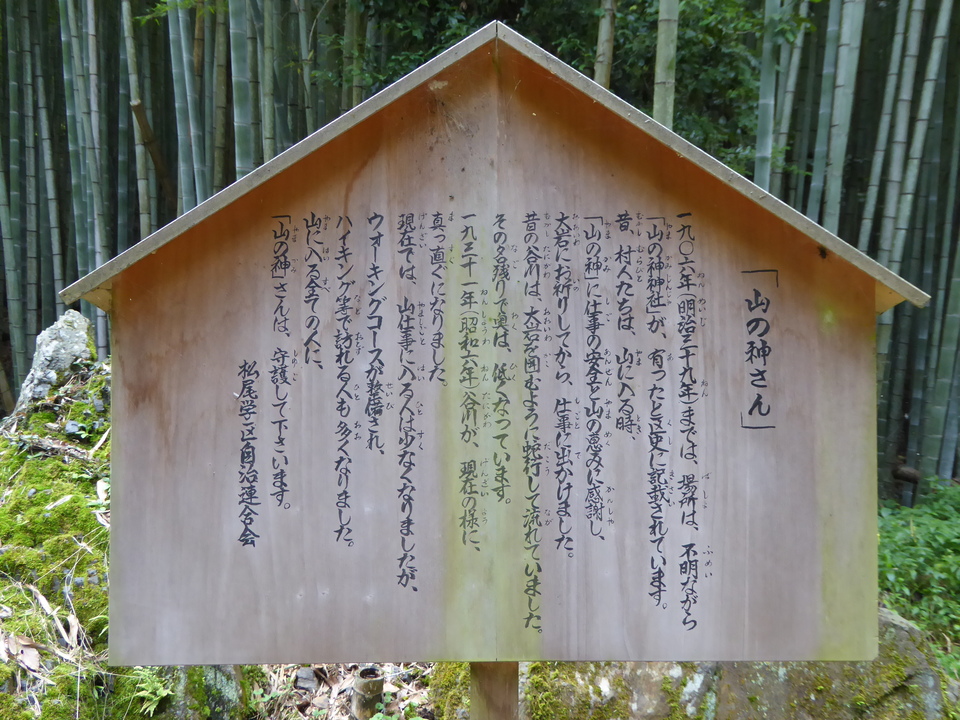 「山の神さん」
一九〇六年(明治三十九年)までは、場所は、不明ながら
「山の神神社」が、有ったと区史に記載されています。
昔、村人たちは、山に入る時、
「山の神」に仕事の安全と山の恵みに感謝し、
大岩にお祈りしてから、仕事に出かけました。
昔の谷川は、大岩を囲むように蛇行して流れていました。
その名残りで奥は、低くなっています。
一九三十一年(昭和六年)谷川が、現在の様に、
真っ直ぐになりました。
現在では、山仕事に入る人は少なくなりましたが、
ウオーキングコースが整備され、
ハイキング等で訪れる人も多くなりました。
山に入る全ての人に、
「山の神」さんは、守護して下さいます。
松尾学区自治連合会